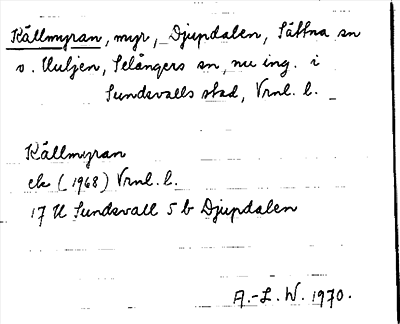 Källmyran, myr, Djupdalen, Sättna sn
o. Uuljen, Selångers sn, nu ing. i
Sundsvalls stad, Vrnl. l.
Källmyran
ek (1968) Vrnl. l.
17 U Sundsvall 5 b Djupdalen
A.-L. W. 1970.